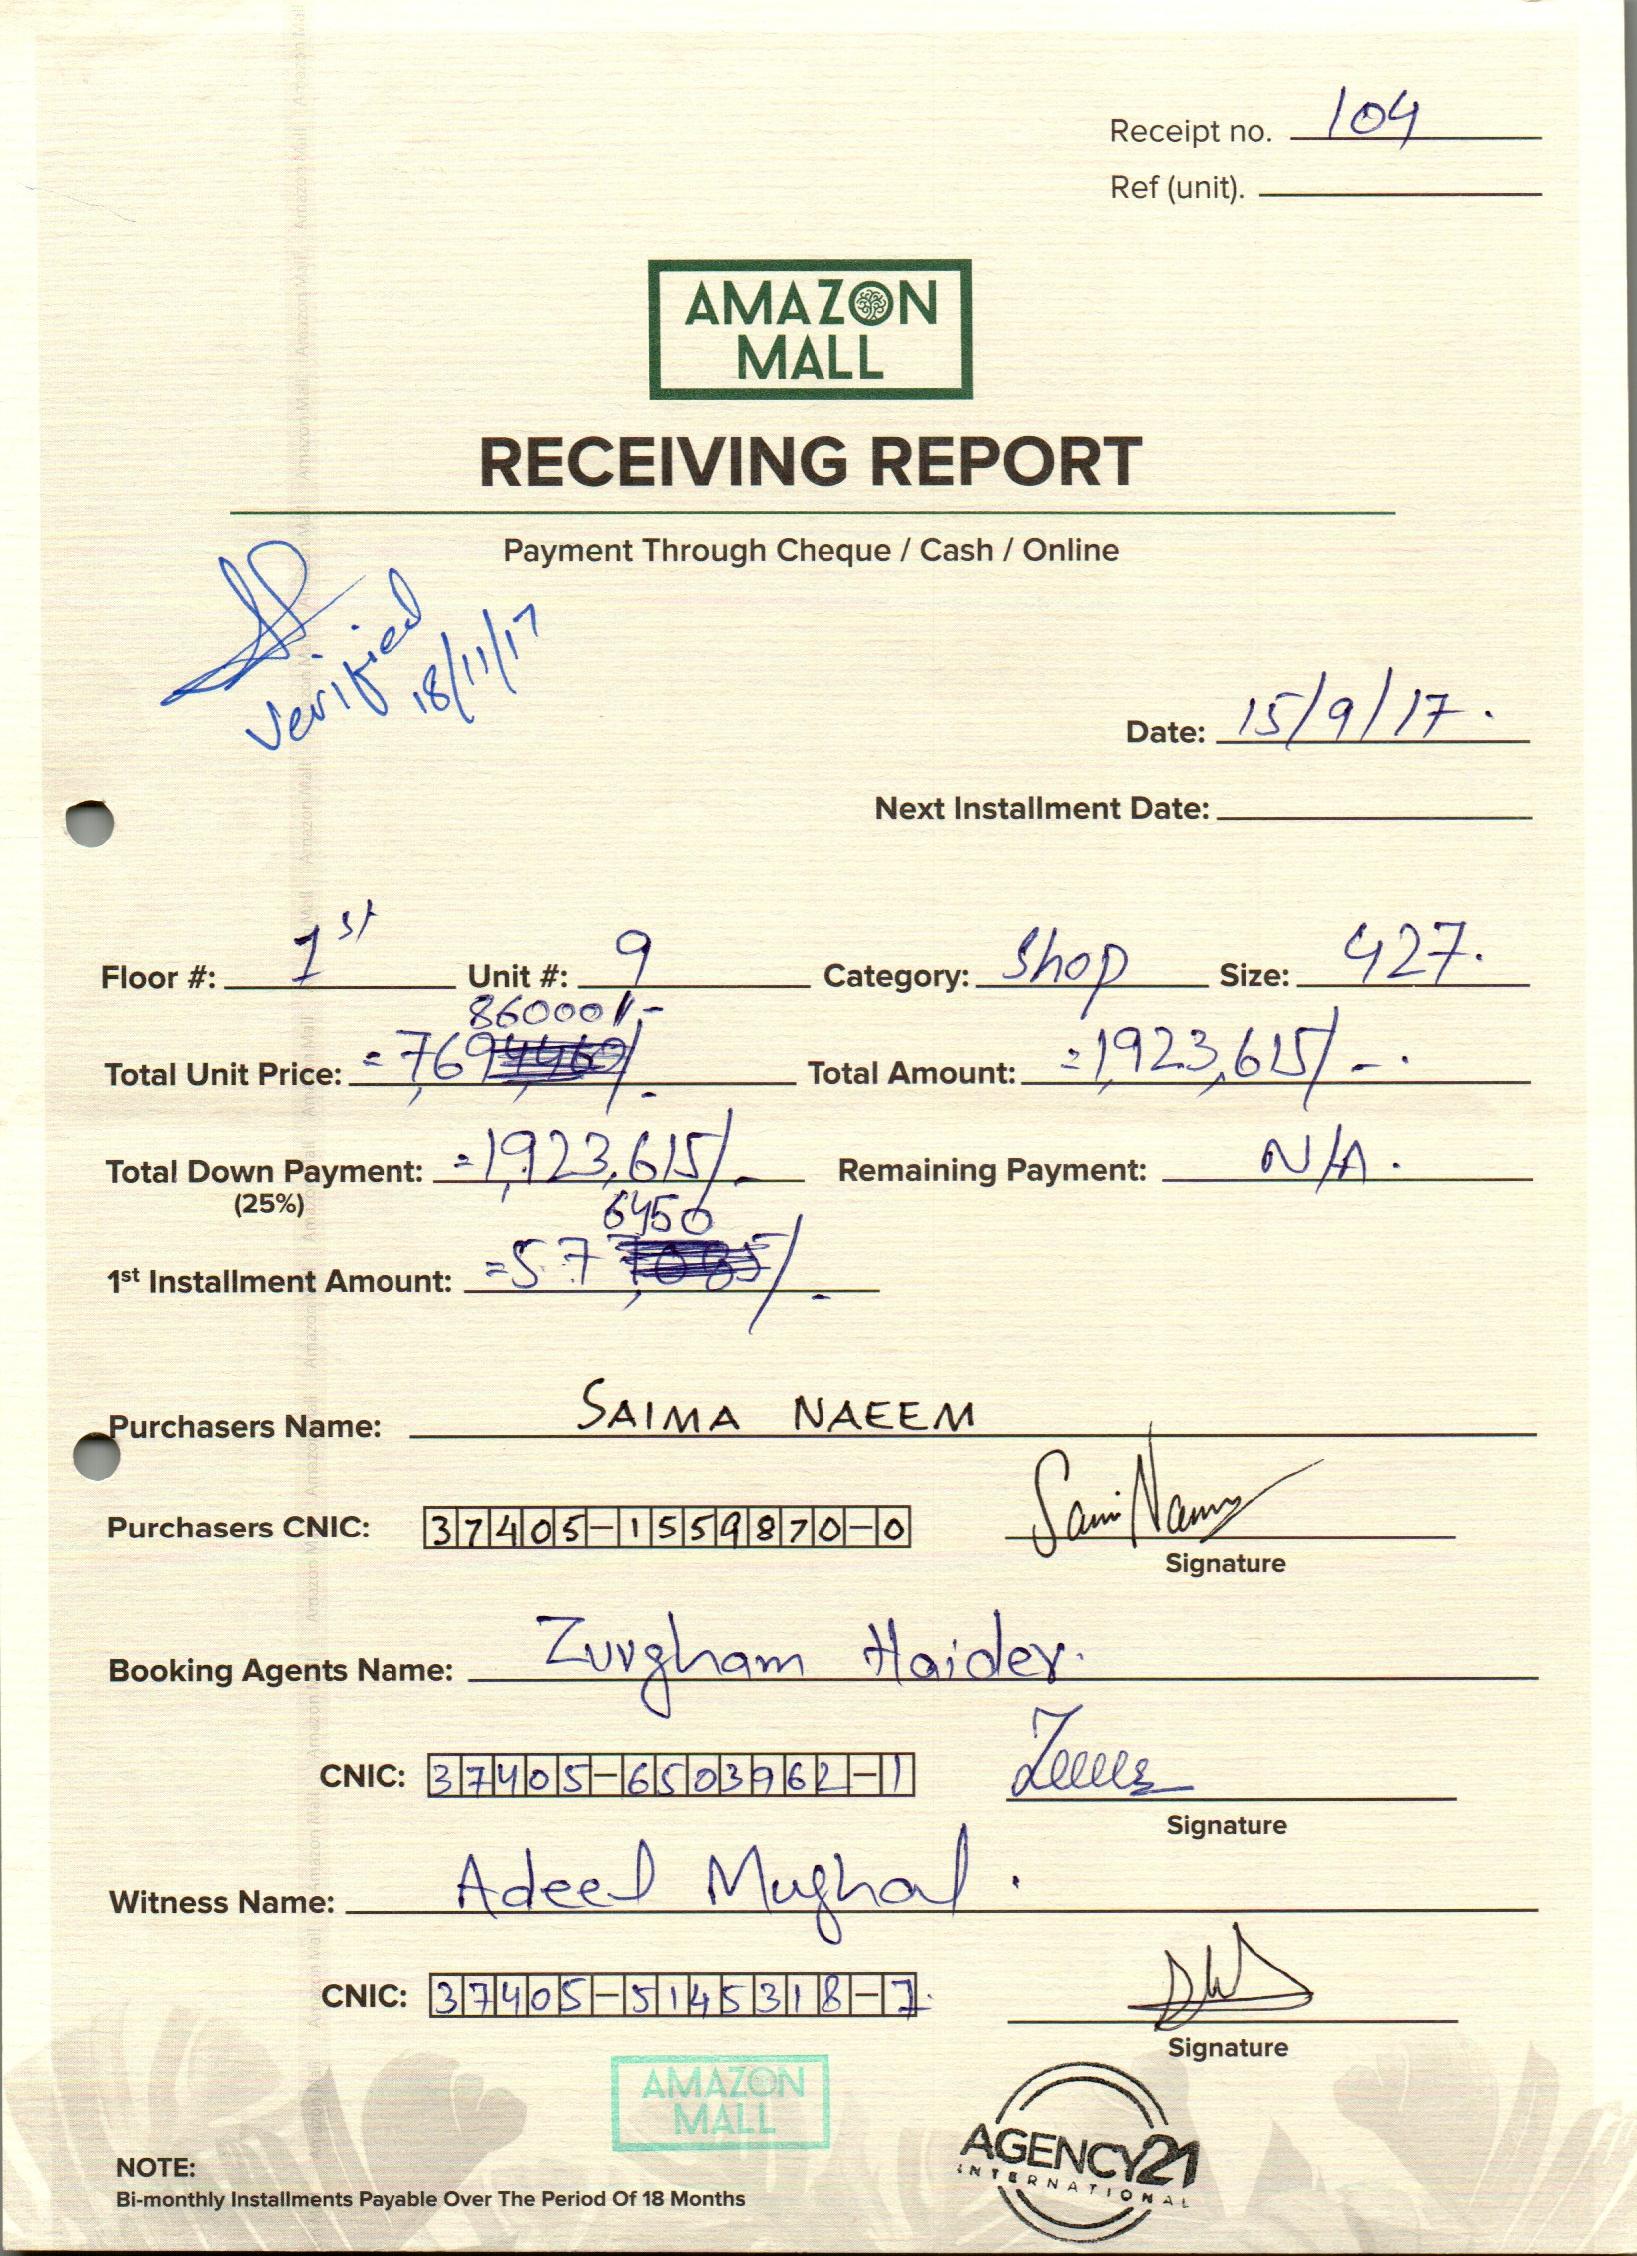 Receipt no. 104
Ref (unit).
AMAZON
MALL
RECEIVING REPORT
Payment Through Cheque / Cash / Online
Verified
18/11/17
Date: 15/9/17.
Next Installment Date:
Floor #: 1st Unit #: 9 Category: Shop Size: 427.
86000/-
Total Unit Price: =7,694,460/- Total Amount: =1,923,615/-.
Total Down Payment: =1,923,615/- Remaining Payment: N/A.
(25%)
6450
1st Installment Amount: =577,085/-
Purchasers Name: SAIMA NAEEM
Purchasers CNIC: 37405-1559870-0
Signature
Booking Agents Name: Zurgham Haider.
CNIC: 37405-6503962-1
Signature
Witness Name: Adeel Mughal.
CNIC: 37405-5145318-7.
Signature
AMAZON
MALL
AGENCY21
INTERNATIONAL
NOTE:
Bi-monthly Installments Payable Over The Period Of 18 Months